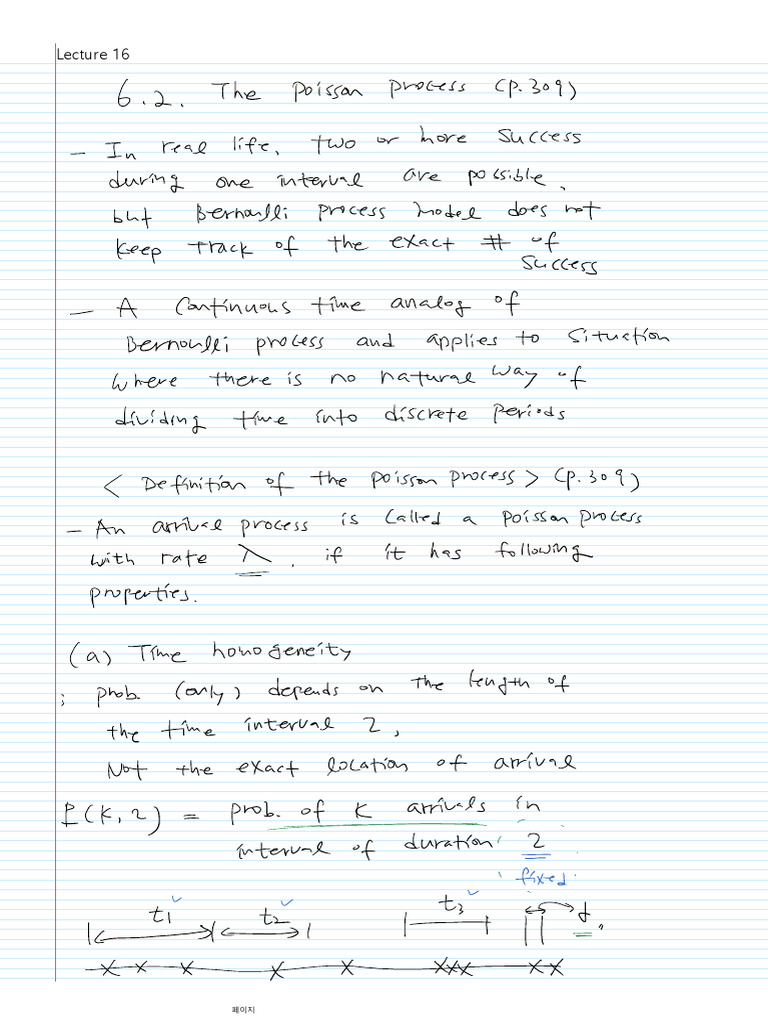 Lecture 16
6.2. The Poisson process (p.309)
- In real life, two or more success
during one interval are possible,
but Bernoulli process model does not
keep track of the exact # of
success
- A continuous time analog of
Bernoulli process and applies to situation
where there is no natural way of
dividing time into discrete periods
< Definition of the poisson process > (p.309)
- An arrival process is called a poisson process
with rate λ, if it has following
properties.
(a) Time homogeneity
; prob. (only) depends on the length of
the time interval τ,
Not the exact location of arrival
P(k,τ) = prob. of k arrivals in
interval of duration τ
fixed
t1 t2 t3 δ
페이지